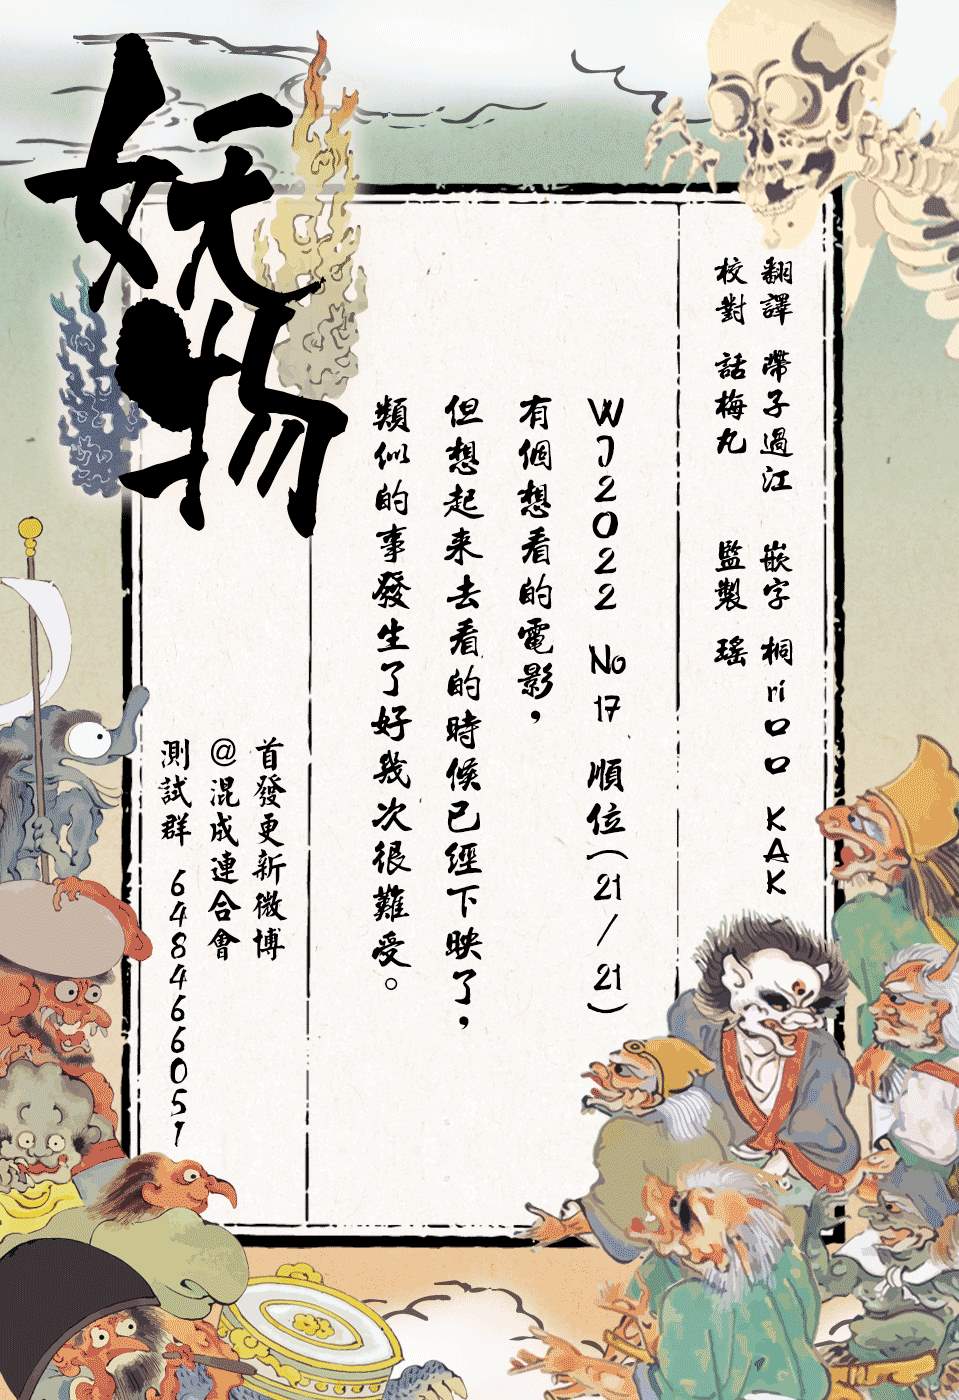 妖物
翻譯 帶子過江 嵌字 桐ri口口 KAK
校對 話梅丸 監製 瑤
WJ2022 No17 順位(21/21)
有個想看的電影，
但想起来去看的時候已經下映了，
類似的事發生了好幾次很難受。
首發更新微博
@混成連合會
測試群 648466051